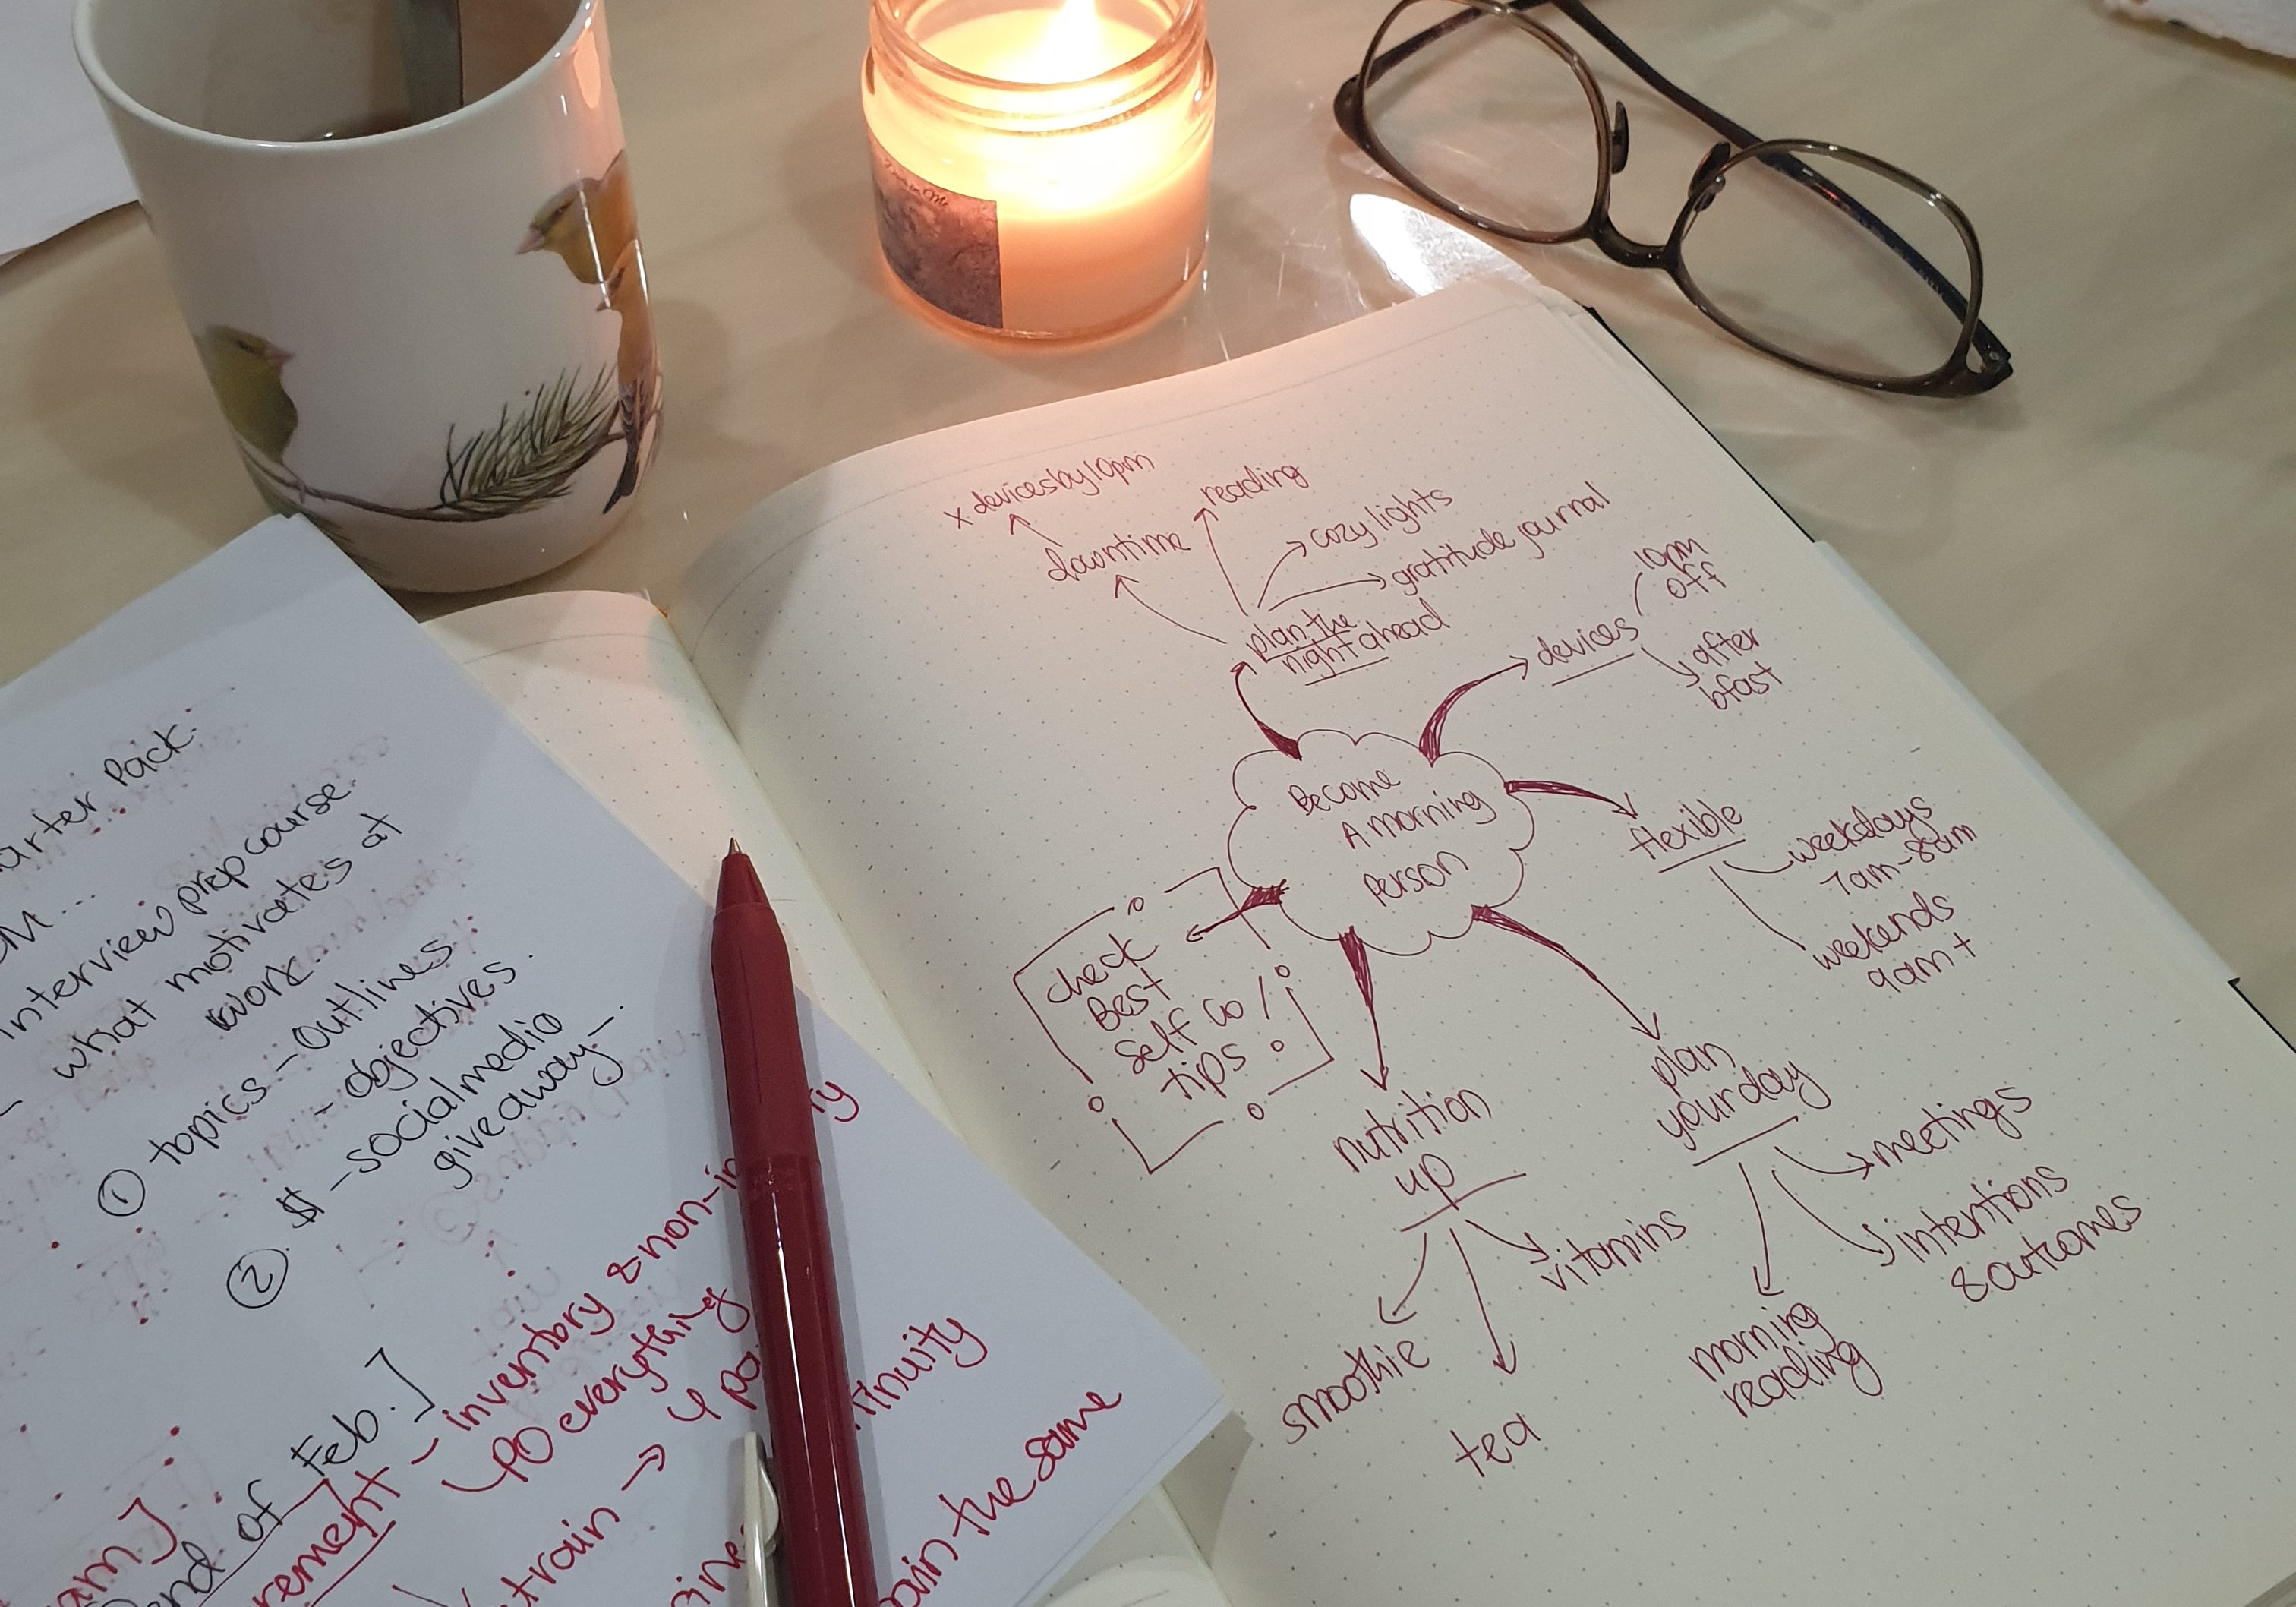 x devices by 10pm
downtime
reading
cozy lights
gratitude journal
plan the
night ahead
devices
10pm
off
after
bfast
Become
A morning
Person
flexible
weekdays
7am-8am
weekends
9am+
plan
your day
meetings
intentions
& outcomes
morning
reading
nutrition
up
vitamins
smoothie
tea
check
Best
Self Co
tips
Pack
interview prep course.
what motivates at
work..
① topics - Outlines
- objectives.
② $ - social media
giveaway -.
end of Feb.]
- inventory & non-in
PO everything
train →
the same